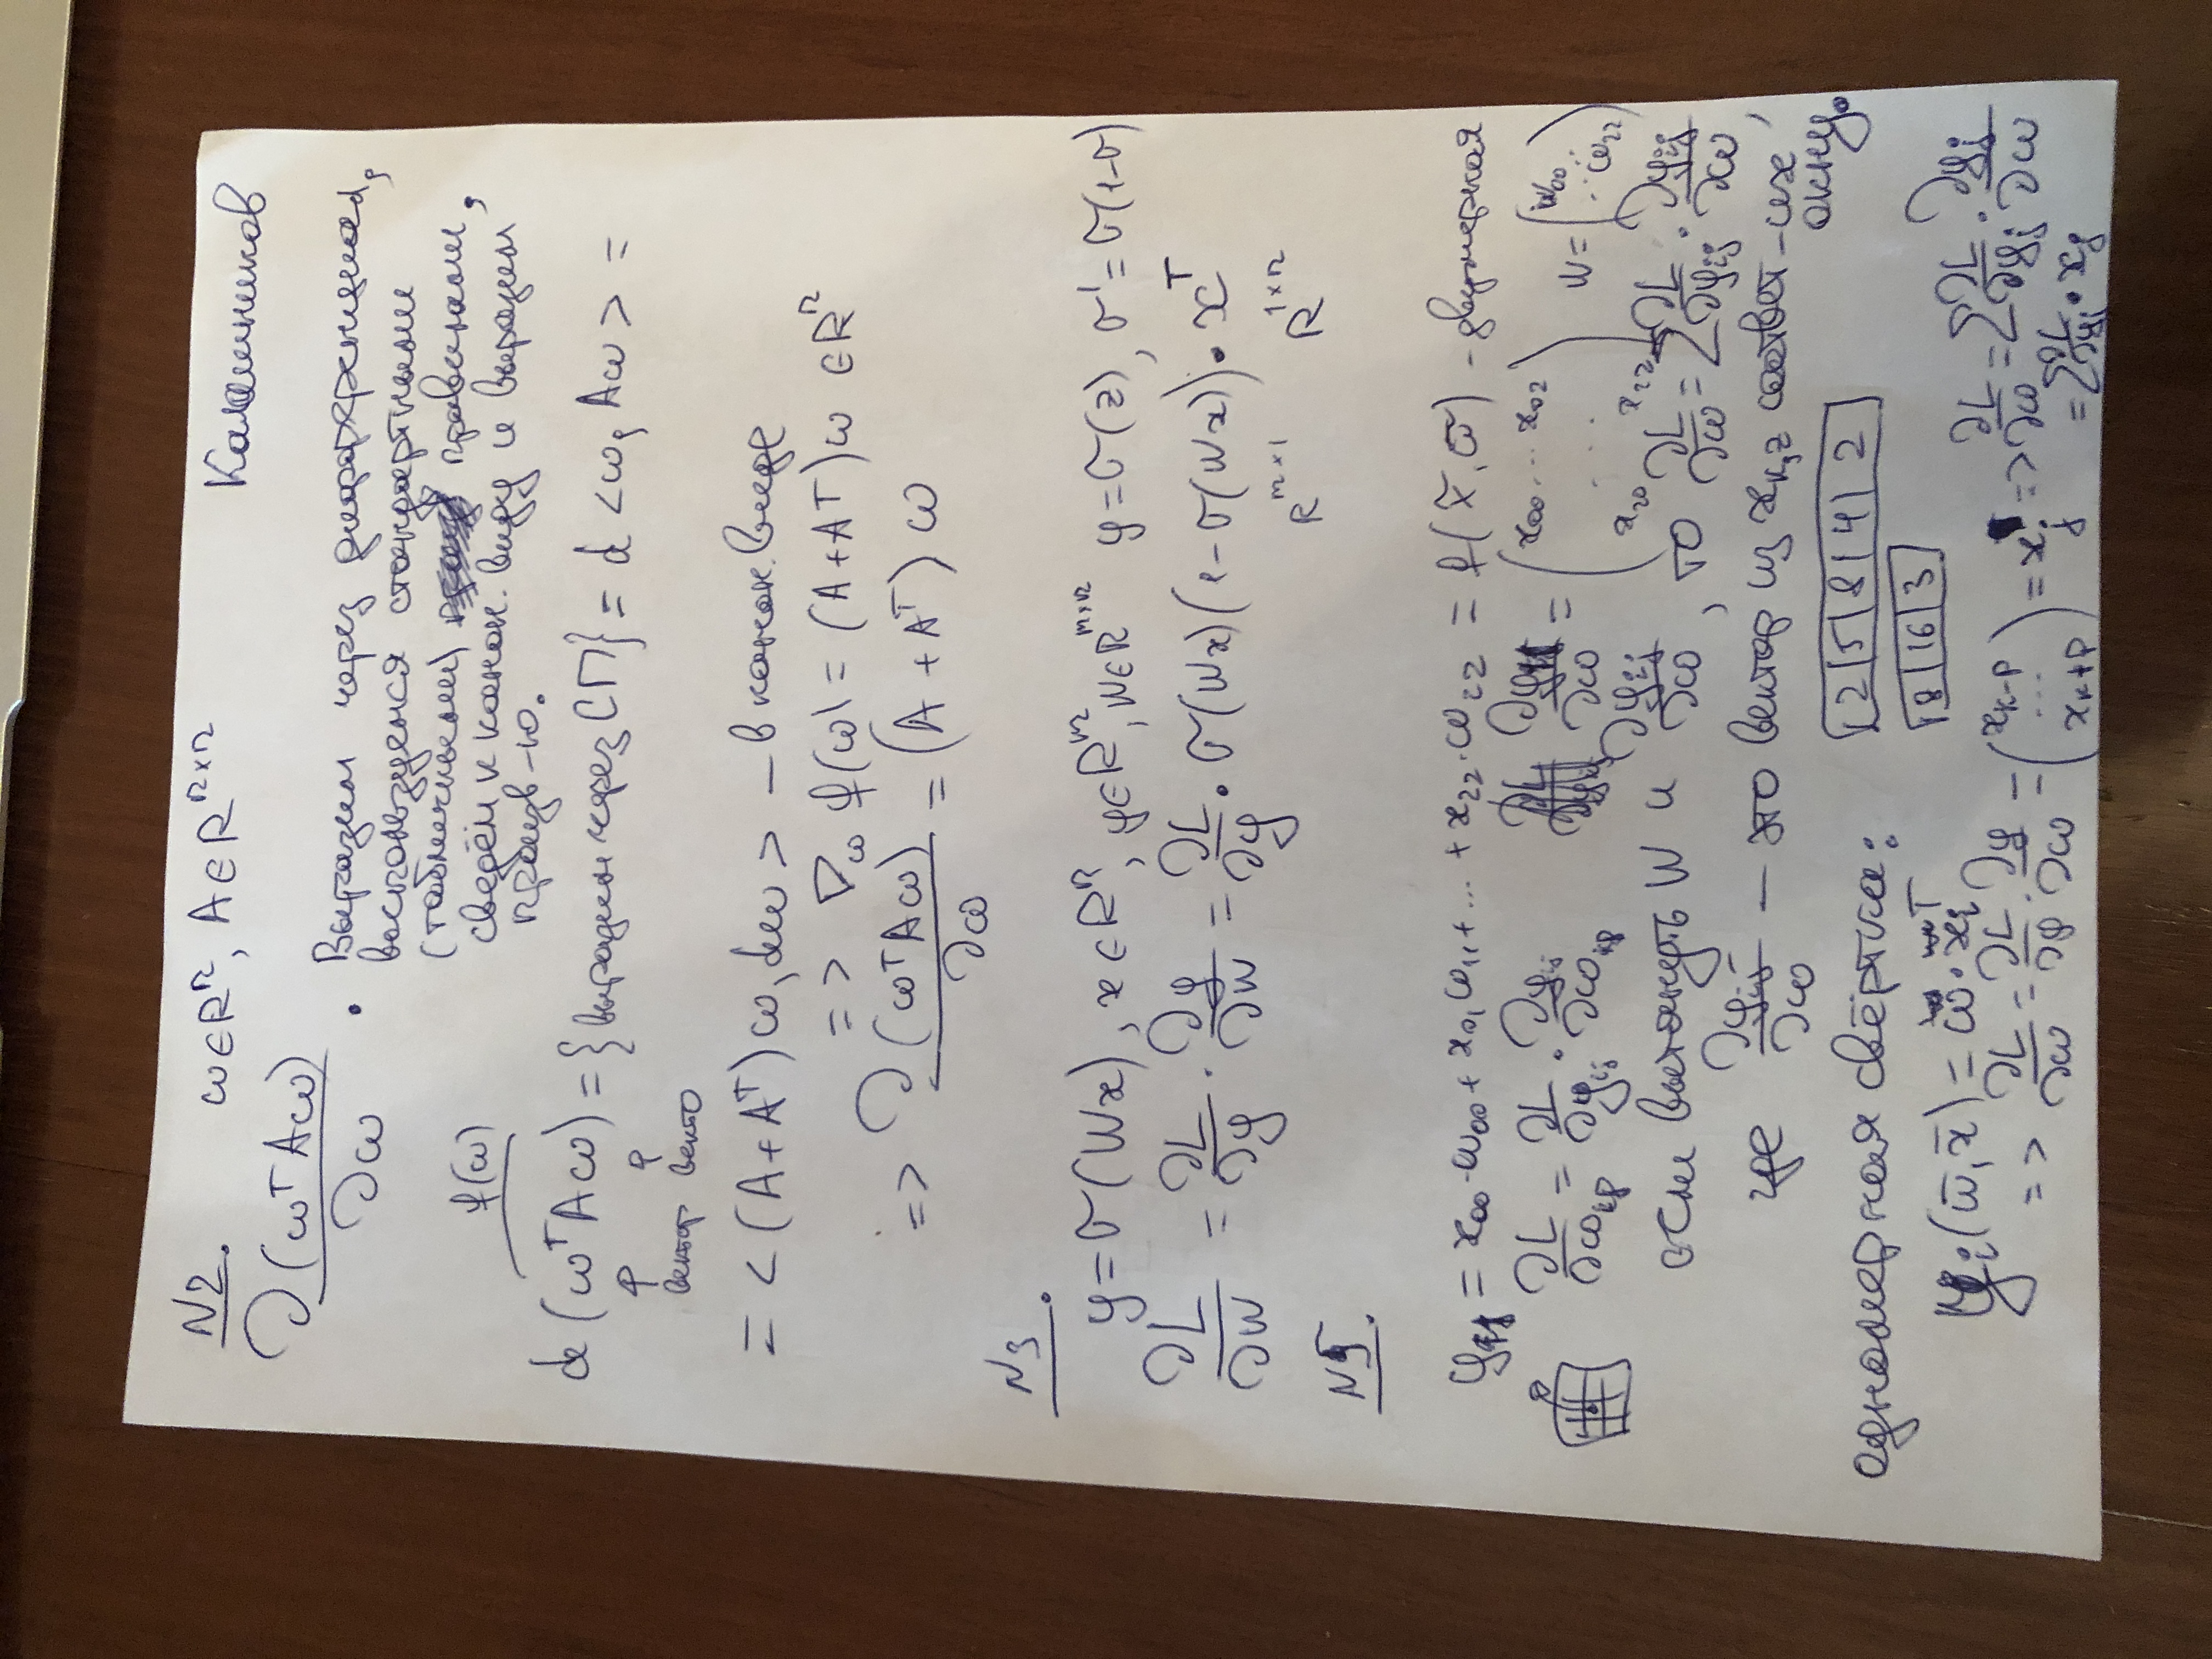 N2. ω∈Rⁿ, A∈Rⁿˣⁿ Калашников
∂(ωᵀAω)/∂ω . Выразим через дифференциал,
воспользуемся стандартными
(табличными) правилами,
сведём к канон. виду и выразим
произв-ю.
f(ω)
d(ωᵀAω) = {выразим через СП} = d <ω, Aω> =
вектор векто
= <(A+Aᵀ)ω, dω> – в канон. виде
=> ∇ω f(ω) = (A+Aᵀ)ω ∈Rⁿ
=> ∂(ωᵀAω)/∂ω = (A+Aᵀ)ω
N3.
y=σ(Wx), x∈Rⁿ, y∈Rᵐ, W∈Rᵐˣⁿ y=σ(z), σ'=σ(1-σ)
∂L/∂W = ∂L/∂y · ∂y/∂W = ∂L/∂y · σ(Wx)(1-σ(Wx)) · xᵀ
Rᵐˣ¹ R¹ˣⁿ
N5.
y₁₁ = x₀₀·ω₀₀ + x₀₁ω₁₁ + ... + x₂₂·ω₂₂ = f(x̄, ω̄) - двумерная
∂L/∂ωₖₚ = ∂L/∂yᵢⱼ · ∂yᵢⱼ/∂ωₖₚ ∂y₁₁/∂ω = (x₀₀ ... x₀₂ ... x₂₀ x₂₂) W = (w₀₀ ... ω₂₂)
если вытянуть W и ∂yᵢⱼ/∂ω, то ∂L/∂ω = Σ ∂L/∂yᵢⱼ · ∂yᵢⱼ/∂ω,
где ∂yᵢⱼ/∂ω – это вектор из соответ-их
окну.
одномерная свёртка: 12|5|8|4|2
18|16|3
yᵢ(ω̄, x̄) = ω̄·x̄ᵢᵀ
=> ∂L/∂ω = ∂L/∂y · ∂y/∂ω = (xₖ₋ₚ ... xₖ₊ₚ) = xⱼ => ∂L/∂ω = Σ ∂L/∂yⱼ · ∂yⱼ/∂ω
= Σ ∂L/∂yⱼ · xⱼ